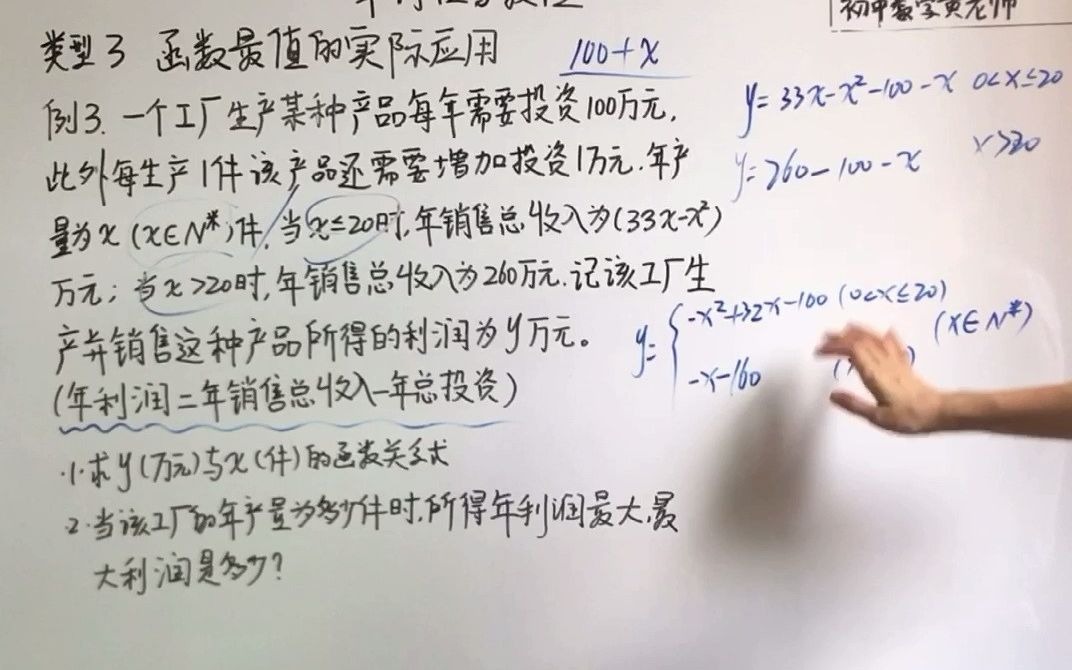 初中数学黄老师
类型3 函数最值的实际应用
100+x
例3. 一个工厂生产某种产品每年需要投资100万元,
此外每生产1件该产品还需要增加投资1万元.年产
量为x (x∈N*)件,当x≤20时,年销售总收入为(33x-x²)
万元; 当x>20时,年销售总收入为260万元.记该工厂生
产并销售这种产品所得的利润为y万元。
(年利润=年销售总收入-年总投资)
1.求y(万元)与x(件)的函数关系式
2.当该工厂的年产量为多少件时,所得年利润最大,最
大利润是多少?
y=33x-x²-100-x 0<x≤20
y=260-100-x x>20
y={-x²+32x-100 (0<x≤20)
(x∈N*)
-x-160